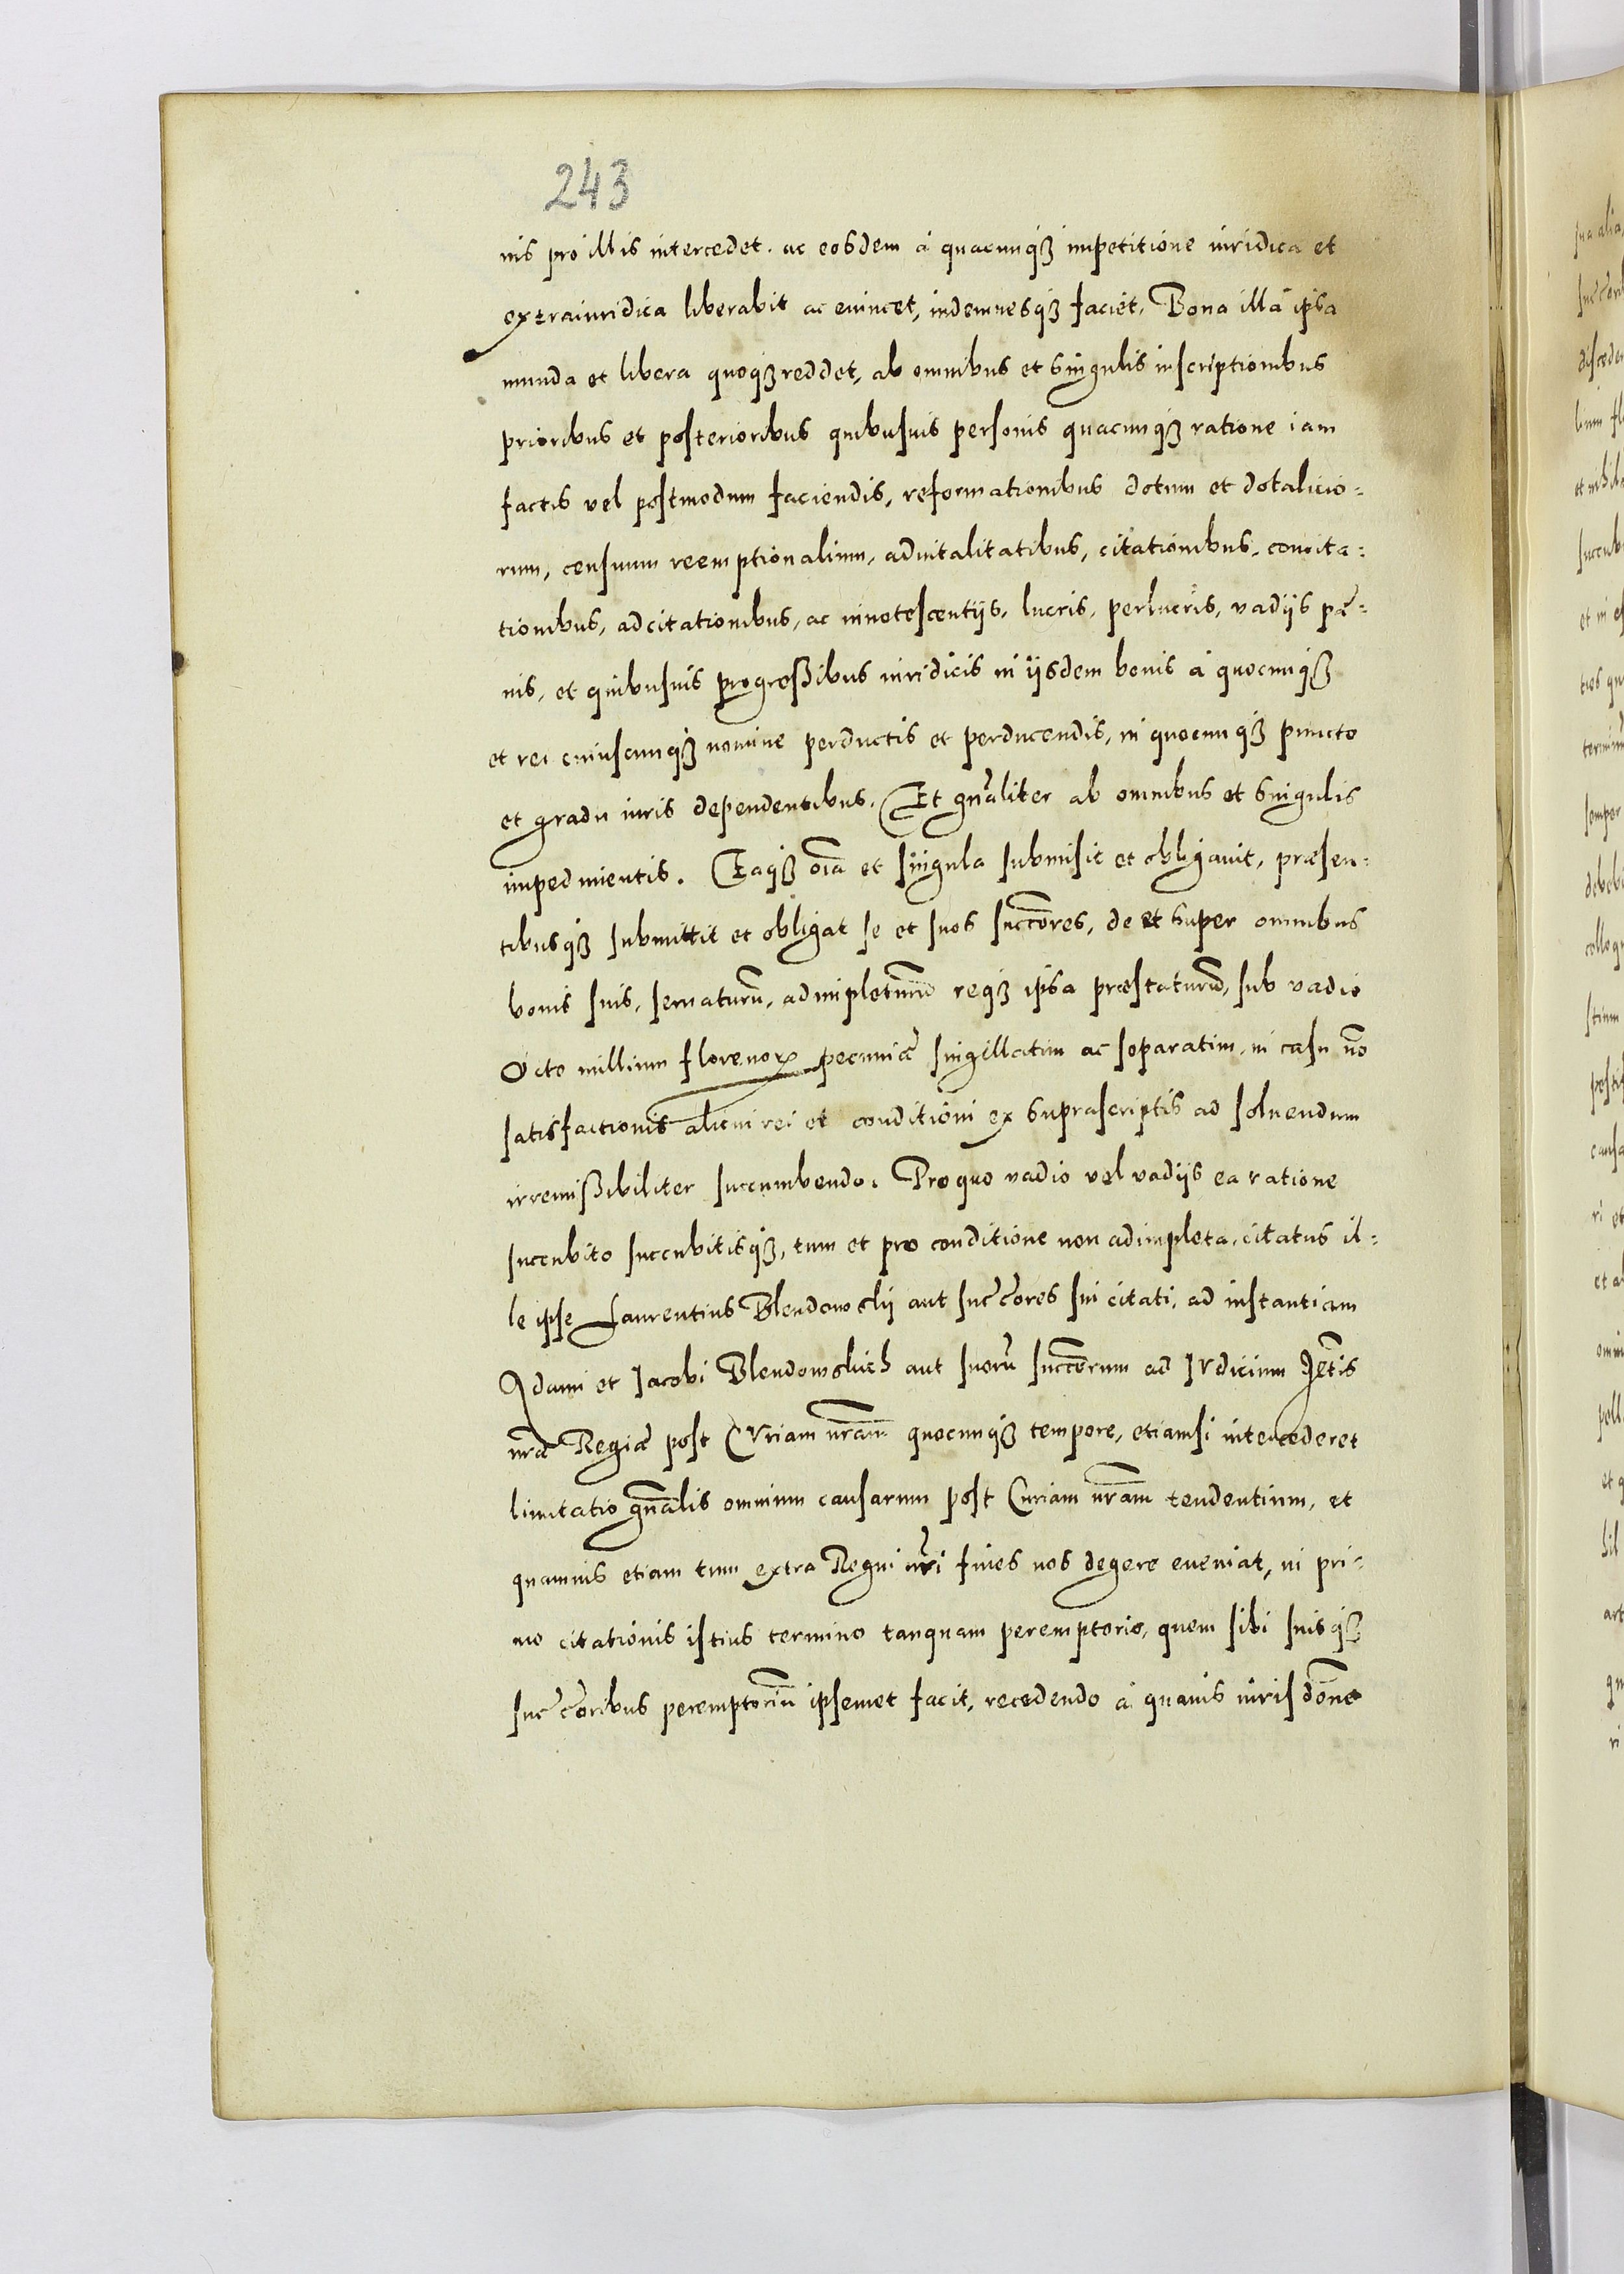 243
nis pro illis intercedet. ac eosdem à quacunqȝ impetitione iuridica et
extraiuridica liberabit ac euincet, indemnesqȝ faciet. Bona illa ipsa
munda et libera quoqȝ reddet, ab omnibus et singulis inscriptionibus
prioribus et posterioribus quibusuis personis quacunqȝ ratione iam
factis vel postmodum faciendis, reformationibus dotum et dotalicio-
rum, censuum reemptionalium, aduitalitatibus, citationibus, concita-
tionibus, adcitationibus, ac innotescentijs, lucris, perlucris, vadijs pę-
nis, et quibusuis progreßibus iuridicis in ijsdem bonis à quocunqȝ
et rei cuiuscunqȝ nomine perductis et perducendis, in quocunqȝ puncto
et gradu iuris dependentibus. Et gn̄aliter ab omnibus et singulis
impedimentis. Eaqȝ oīa et singula submisit et obligauit, præsen-
tibusqȝ submittit et obligat se et suos succ̄ores, de et super omnibus
bonis suis, seruaturū, adimpleturū reqȝ ipsa præstaturū, sub vadio
Octo millium florenoꝝ pecuniæ singillatim ac separatim, in casu nō
satisfactionis alicui rei et conditioni ex suprascriptis ad soluendum
irremißibiliter succumbendo. Pro quo vadio vel vadijs ea ratione
succubito succubitisqȝ, tum et pro conditione non adimpleta, citatus il-
le ipse Laurentius Blendowskij aut succ̄ores sui citati, ad instantiam
Adami et Jacobi Blendowskich aut suorū succ̄orum ad Iudicium Mtis
nræ Regiæ post Curiam nrām quocunqȝ tempore, etiamsi intercederet
limitatio gn̄alis omnium causarum post Curiam nrām tendentium, et
quamuis etiam tum extra Regni nri fines nos degere eueniat, in pri-
mo citationis istius termino tanquam peremptorio, quem sibi suisqȝ
succ̄oribus peremptoriū ipsemet facit, recedendo à quauis iurisdōne